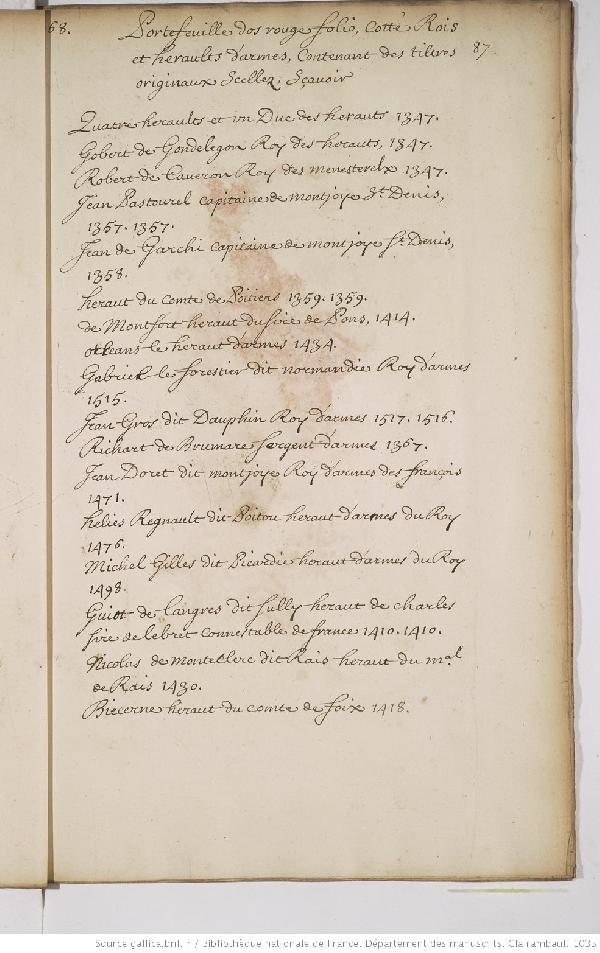 68. Portefeuille dos rouge folio, Cotté Rois
et heraults d'armes, Contenant des tiltres 87.
originaux Scellez; Sçavoir
Quatre heraults et un Duc des herauts 1347.
Gobert de Gondelegon Roy des herauts, 1347.
Robert de Caveron Roy des menesterelx 1347.
Jean Pastourel Capitaine de montjoye St. Denis,
1357. 1357.
Jean de Garchi Capitaine de montjoye St. Denis,
1358.
heraut du Comte de Poitiers 1359. 1359.
de Montfort heraut du sire de Pons, 1414.
orleans le heraut d'armes 1434.
Gabriel le forestier dit normandie Roy d'armes
1515.
Jean Gros dit Dauphin Roy d'armes 1517. 1516.
Richart de Brumare sergent d'armes 1367.
Jean Doret dit montjoye Roy d'armes des françois
1471.
helies Regnault dit Poitou heraut d'armes du Roy
1476.
Michel Gilles dit Picardie heraut d'armes du Roy
1498.
Guiot de langres dit sully heraut de charles
sire de lebret Connestable de france 1410. 1410.
Nicolas de Montellerc dit Rais heraut du mal.
de Rais 1430.
Biecerne heraut du comte de foix 1418.
Source gallica.bnf.fr / Bibliothèque nationale de France. Département des manuscrits. Clairambault 1035